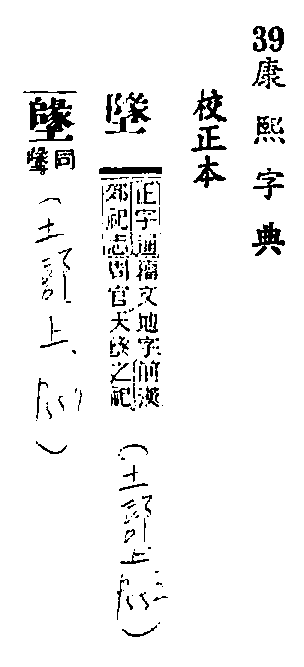 39康熙字典
校正本
墬
正字通籀文地字前漢
郊祀志周官天墬之祀
(土部上、
同墬
(土部上、